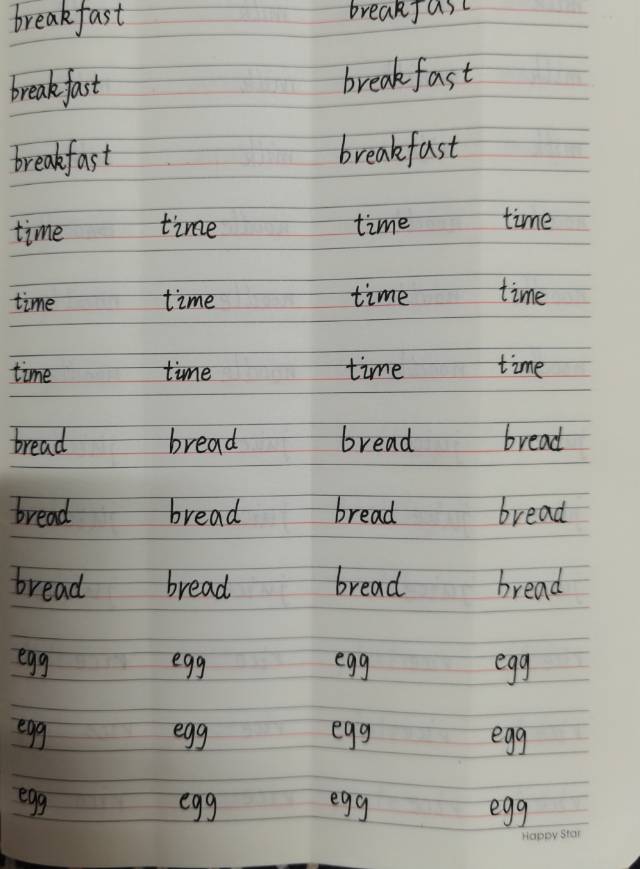 breakfast breakfast
breakfast breakfast
breakfast breakfast
time time time time
time time time time
time time time time
bread bread bread bread
bread bread bread bread
bread bread bread bread
egg egg egg egg
egg egg egg egg
egg egg egg egg
Happy Star